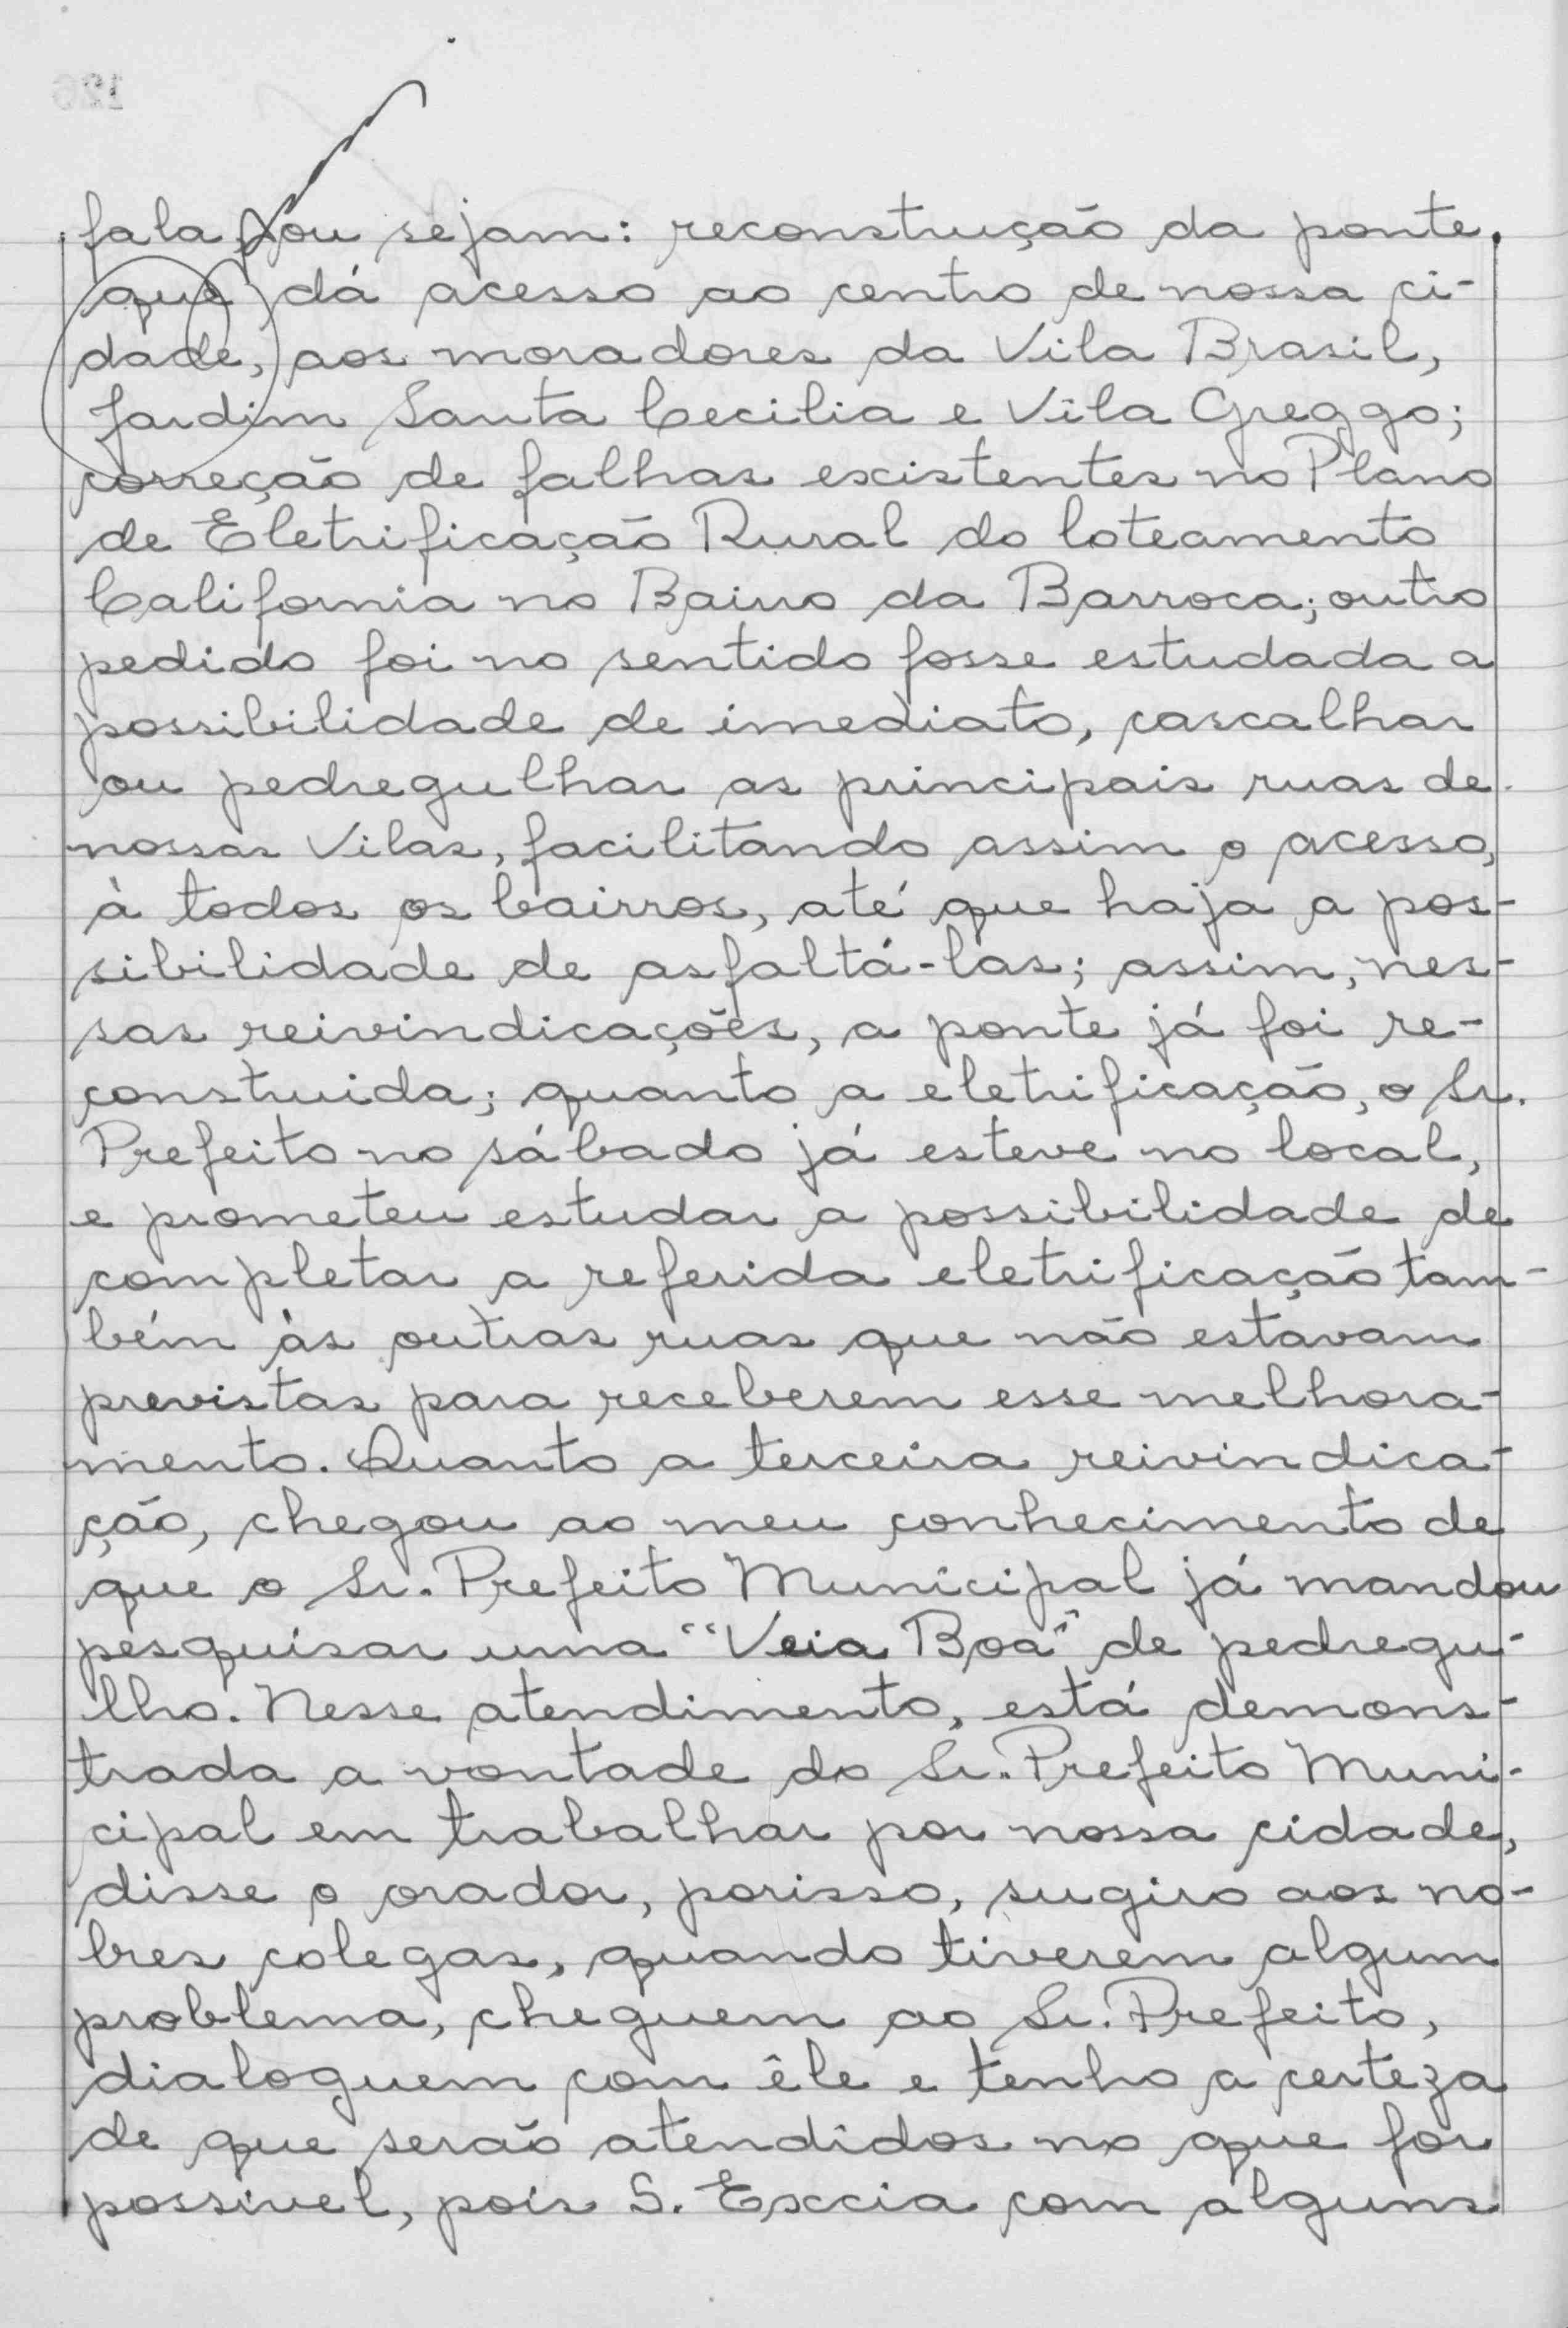 fala, ou sejam: reconstrução da ponte,
que dá acesso ao centro de nossa ci-
dade, aos moradores da Vila Brasil,
Jardim Santa Cecilia e Vila Greggo;
correção de falhas existentes no Plano
de Eletrificação Rural do loteamento
California no Bairro da Barroca; outro
pedido foi no sentido fosse estudada a
possibilidade de imediato, cascalhar
ou pedregulhar as principais ruas de
nossas Vilas, facilitando assim o acesso,
à todos os bairros, até que haja a pos-
sibilidade de asfaltá-las; assim, nes-
sas reivindicações, a ponte já foi re-
construida; quanto a eletrificação, o Sr.
Prefeito no sábado já esteve no local,
e prometeu estudar a possibilidade de
completar a referida eletrificação tam-
bém às outras ruas que não estavam
previstas para receberem esse melhora-
mento. Quanto a terceira reivindica-
ção, chegou ao meu conhecimento de
que o Sr. Prefeito Municipal já mandou
pesquisar uma "Veia Boa" de pedregu-
lho. Nesse atendimento, está demons-
trada a vontade do Sr. Prefeito Muni-
cipal em trabalhar por nossa cidade,
disse o orador, porisso, sugiro aos no-
bres colegas, quando tiverem algum
problema, cheguem ao Sr. Prefeito,
dialoguem com êle e tenho a certeza
de que serão atendidos no que for
possivel, pois S. Excia com alguns